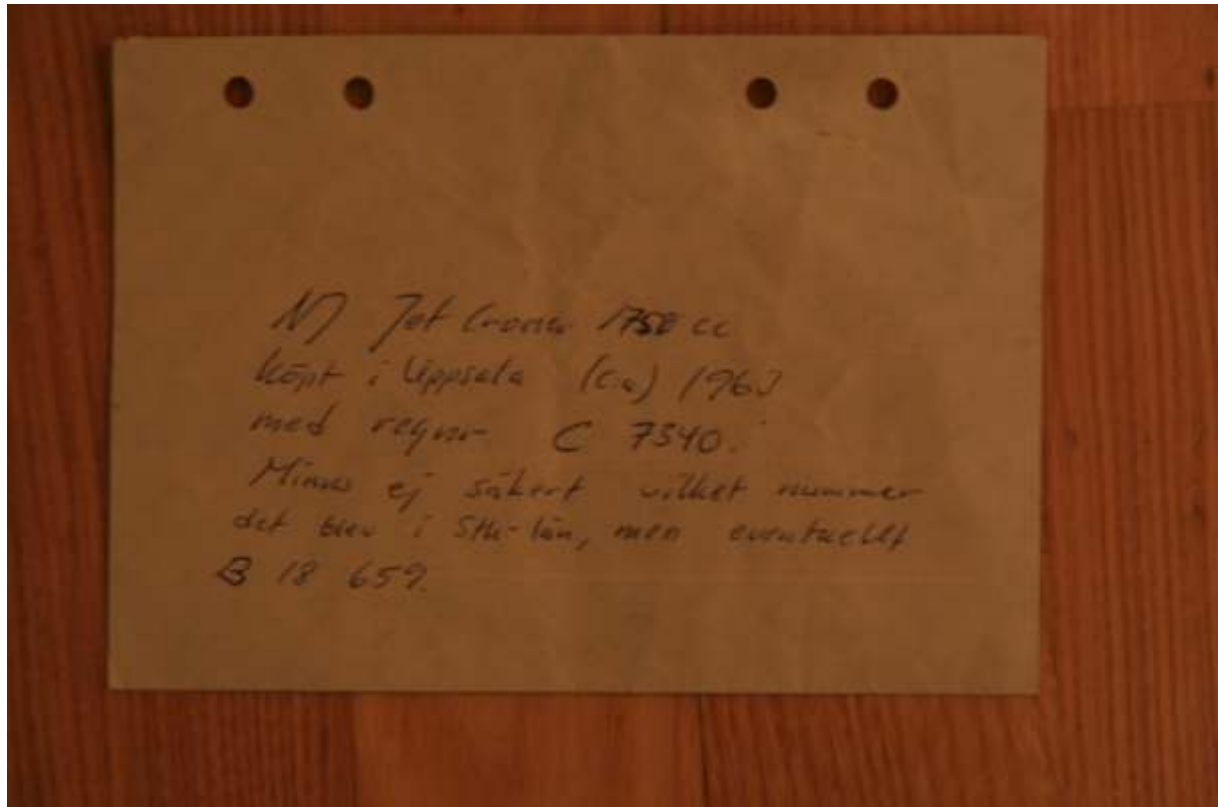 NJ Jet Cronor 1750 cc
köpt i Uppsala (c:a) 1963
med regnr C 7340.
Minns ej säkert vilket nummer
det blev i Sth-län, men eventuellt
B 18 659.